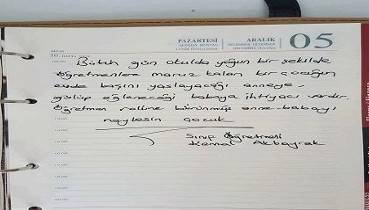 PAZARTESİ
ARALIK
05
Bütün gün okulda yoğun bir şekilde
öğretmenlere maruz kalan bir çocuğun
evde başını yaslayacağı anneye,
gülüp eğleneceği babaya ihtiyacı vardır.
Öğretmen rolüne bürünmüş anne-babayı
neylesin çocuk
Sınıf Öğretmeni
Kemal Akbayrak